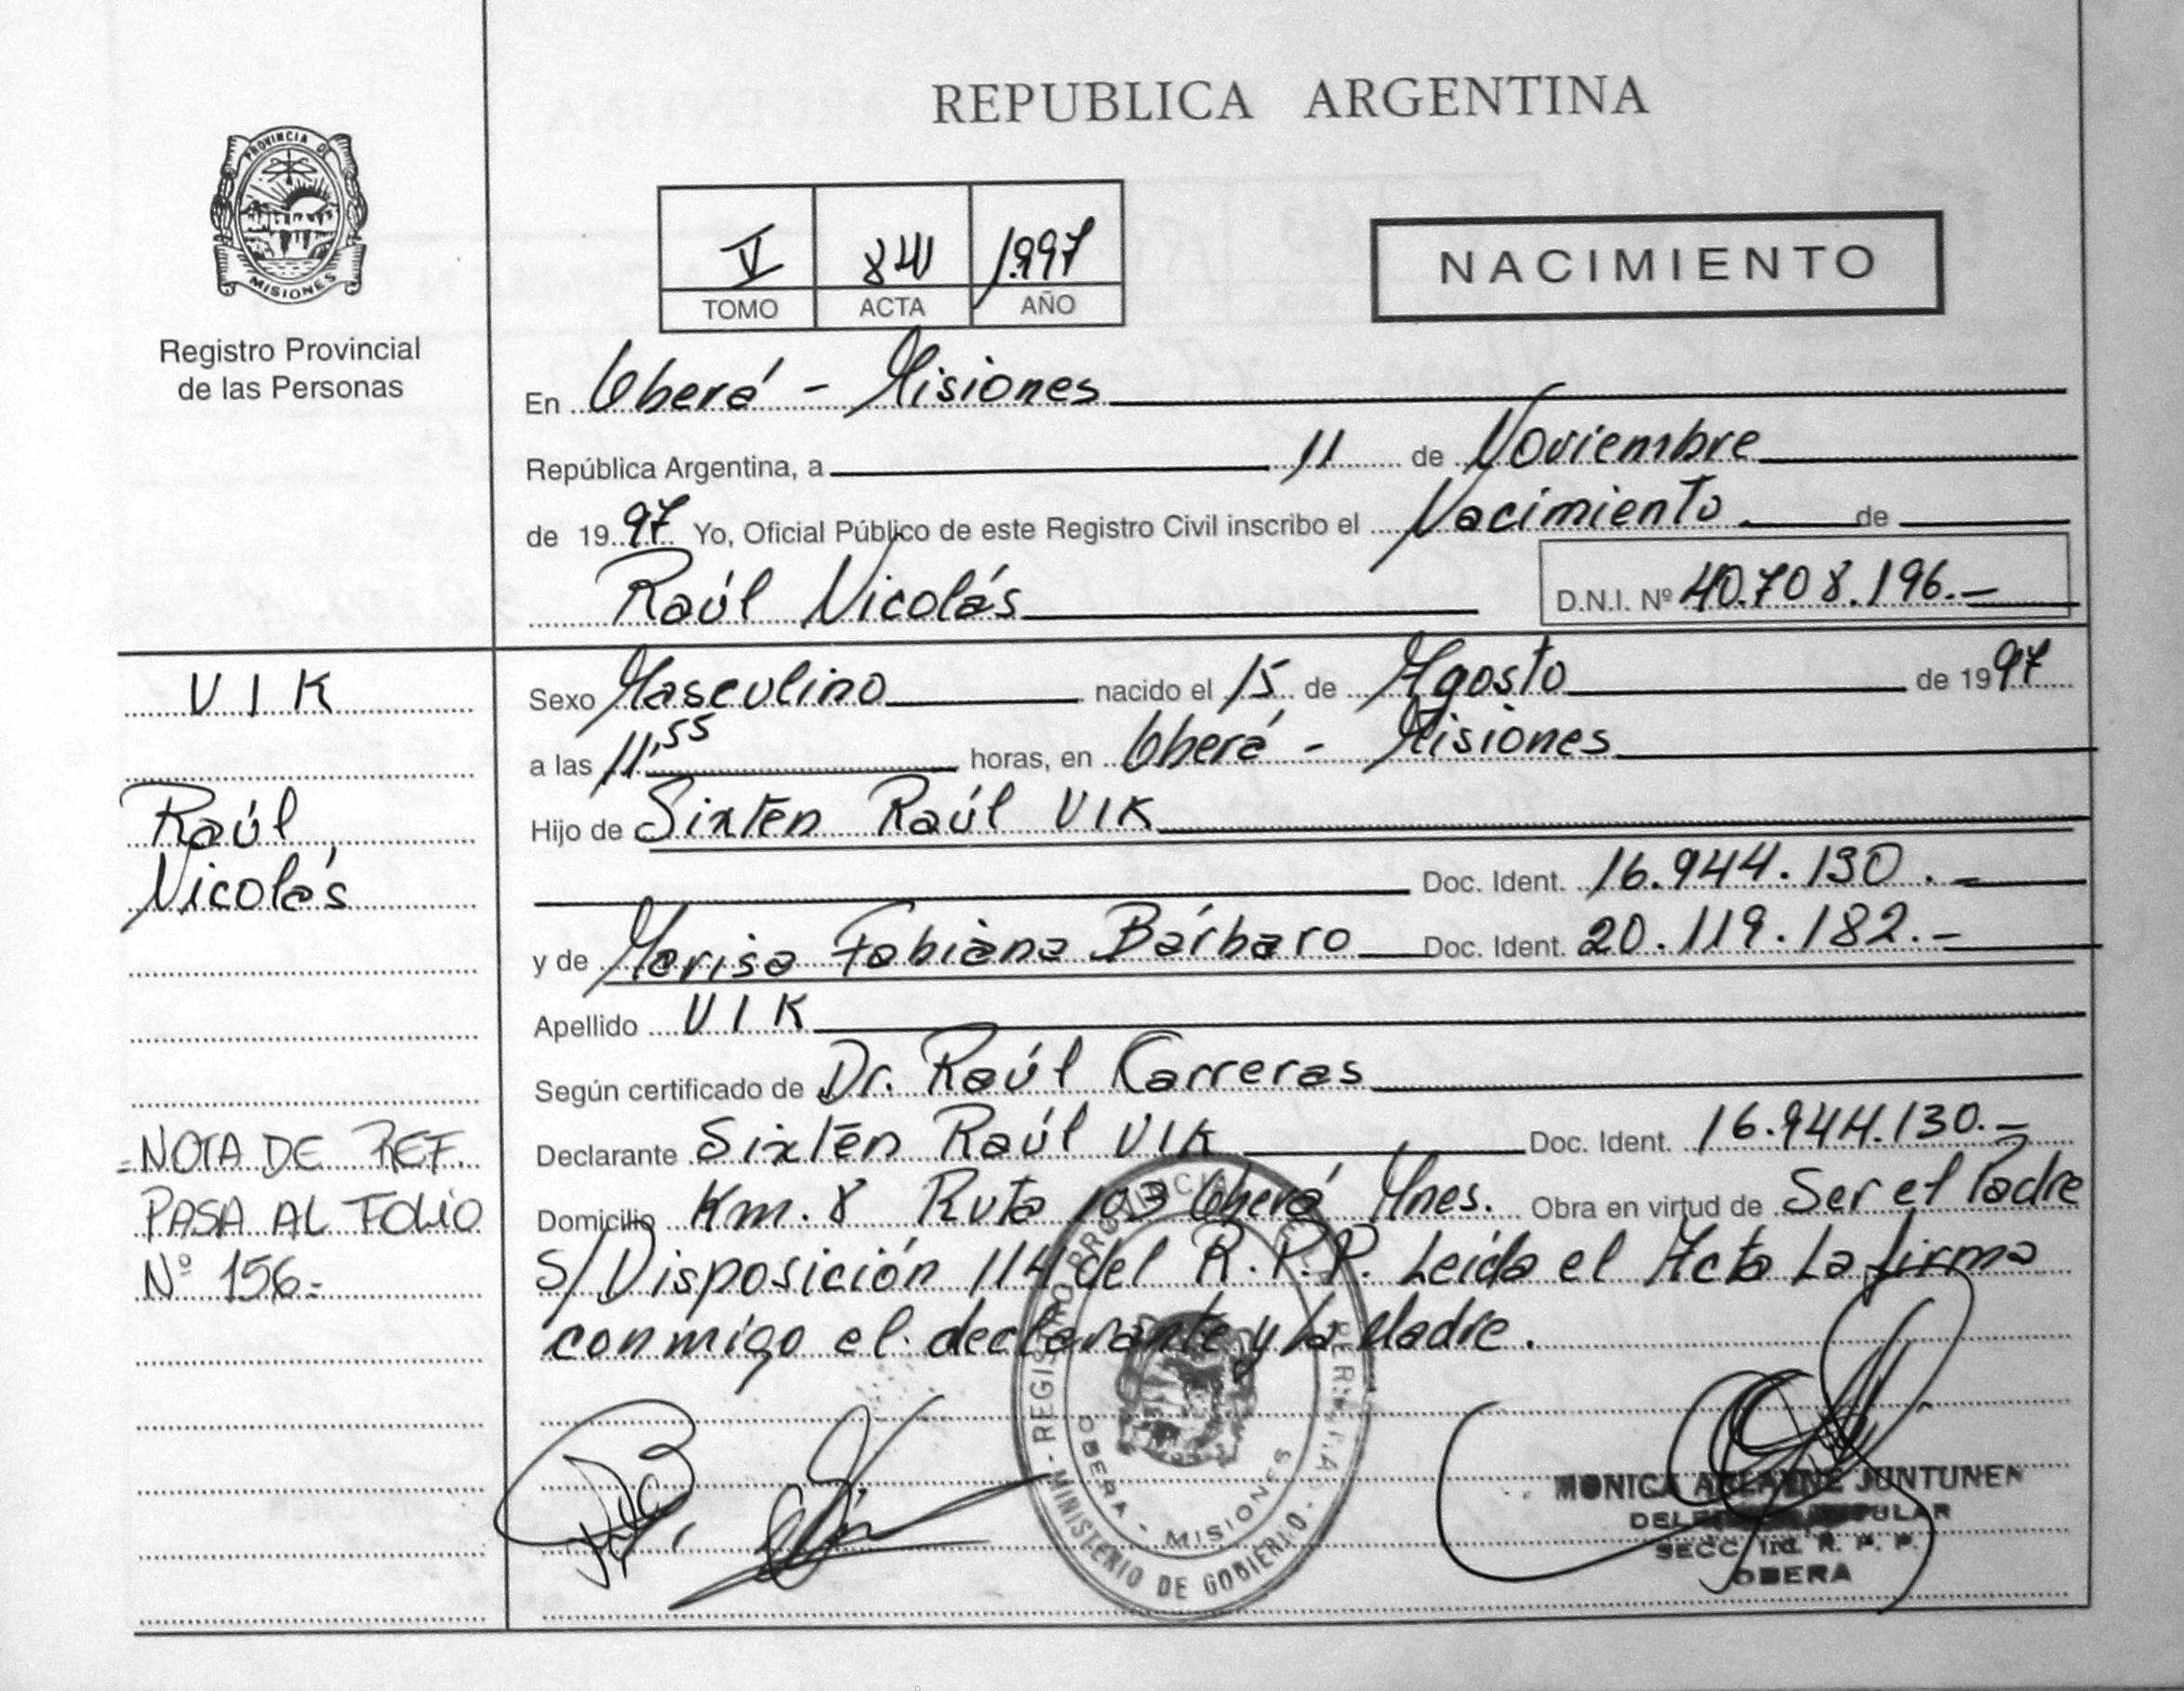 REPUBLICA ARGENTINA
PROVINCIA DE
MISIONES
Registro Provincial
de las Personas
V 841 1997
TOMO ACTA AÑO
NACIMIENTO
En Oberá - Misiones
República Argentina, a 11 de Noviembre
de 1997 Yo, Oficial Público de este Registro Civil inscribo el Nacimiento de
Raúl Nicolás D.N.I. Nº 40.708.196.-
VIK
Raúl
Nicolás
NOTA DE REF.
PASA AL FOLIO
Nº 156.-
Sexo Masculino nacido el 15 de Agosto de 1997
a las 11,55 horas, en Oberá - Misiones
Hijo de Sixten Raúl VIK
Doc. Ident. 16.944.130.-
y de Marisa Fabiana Bárbaro Doc. Ident. 20.119.182.-
Apellido VIK
Según certificado de Dr. Raúl Carreras
Declarante Sixten Raúl VIK Doc. Ident. 16.944.130.-
Domicilio Km. 8 Ruta 103 Oberá Mnes. Obra en virtud de Ser el Padre
S/Disposición 114 del R.P.P. Leída el Acta La firma
conmigo el declarante y la Madre.
REGISTRO PROVINCIAL
OBERA - MISIONES
MINISTERIO DE GOBIERNO
MONICA JUNTUNEN
SECC. R. P. P.
OBERA